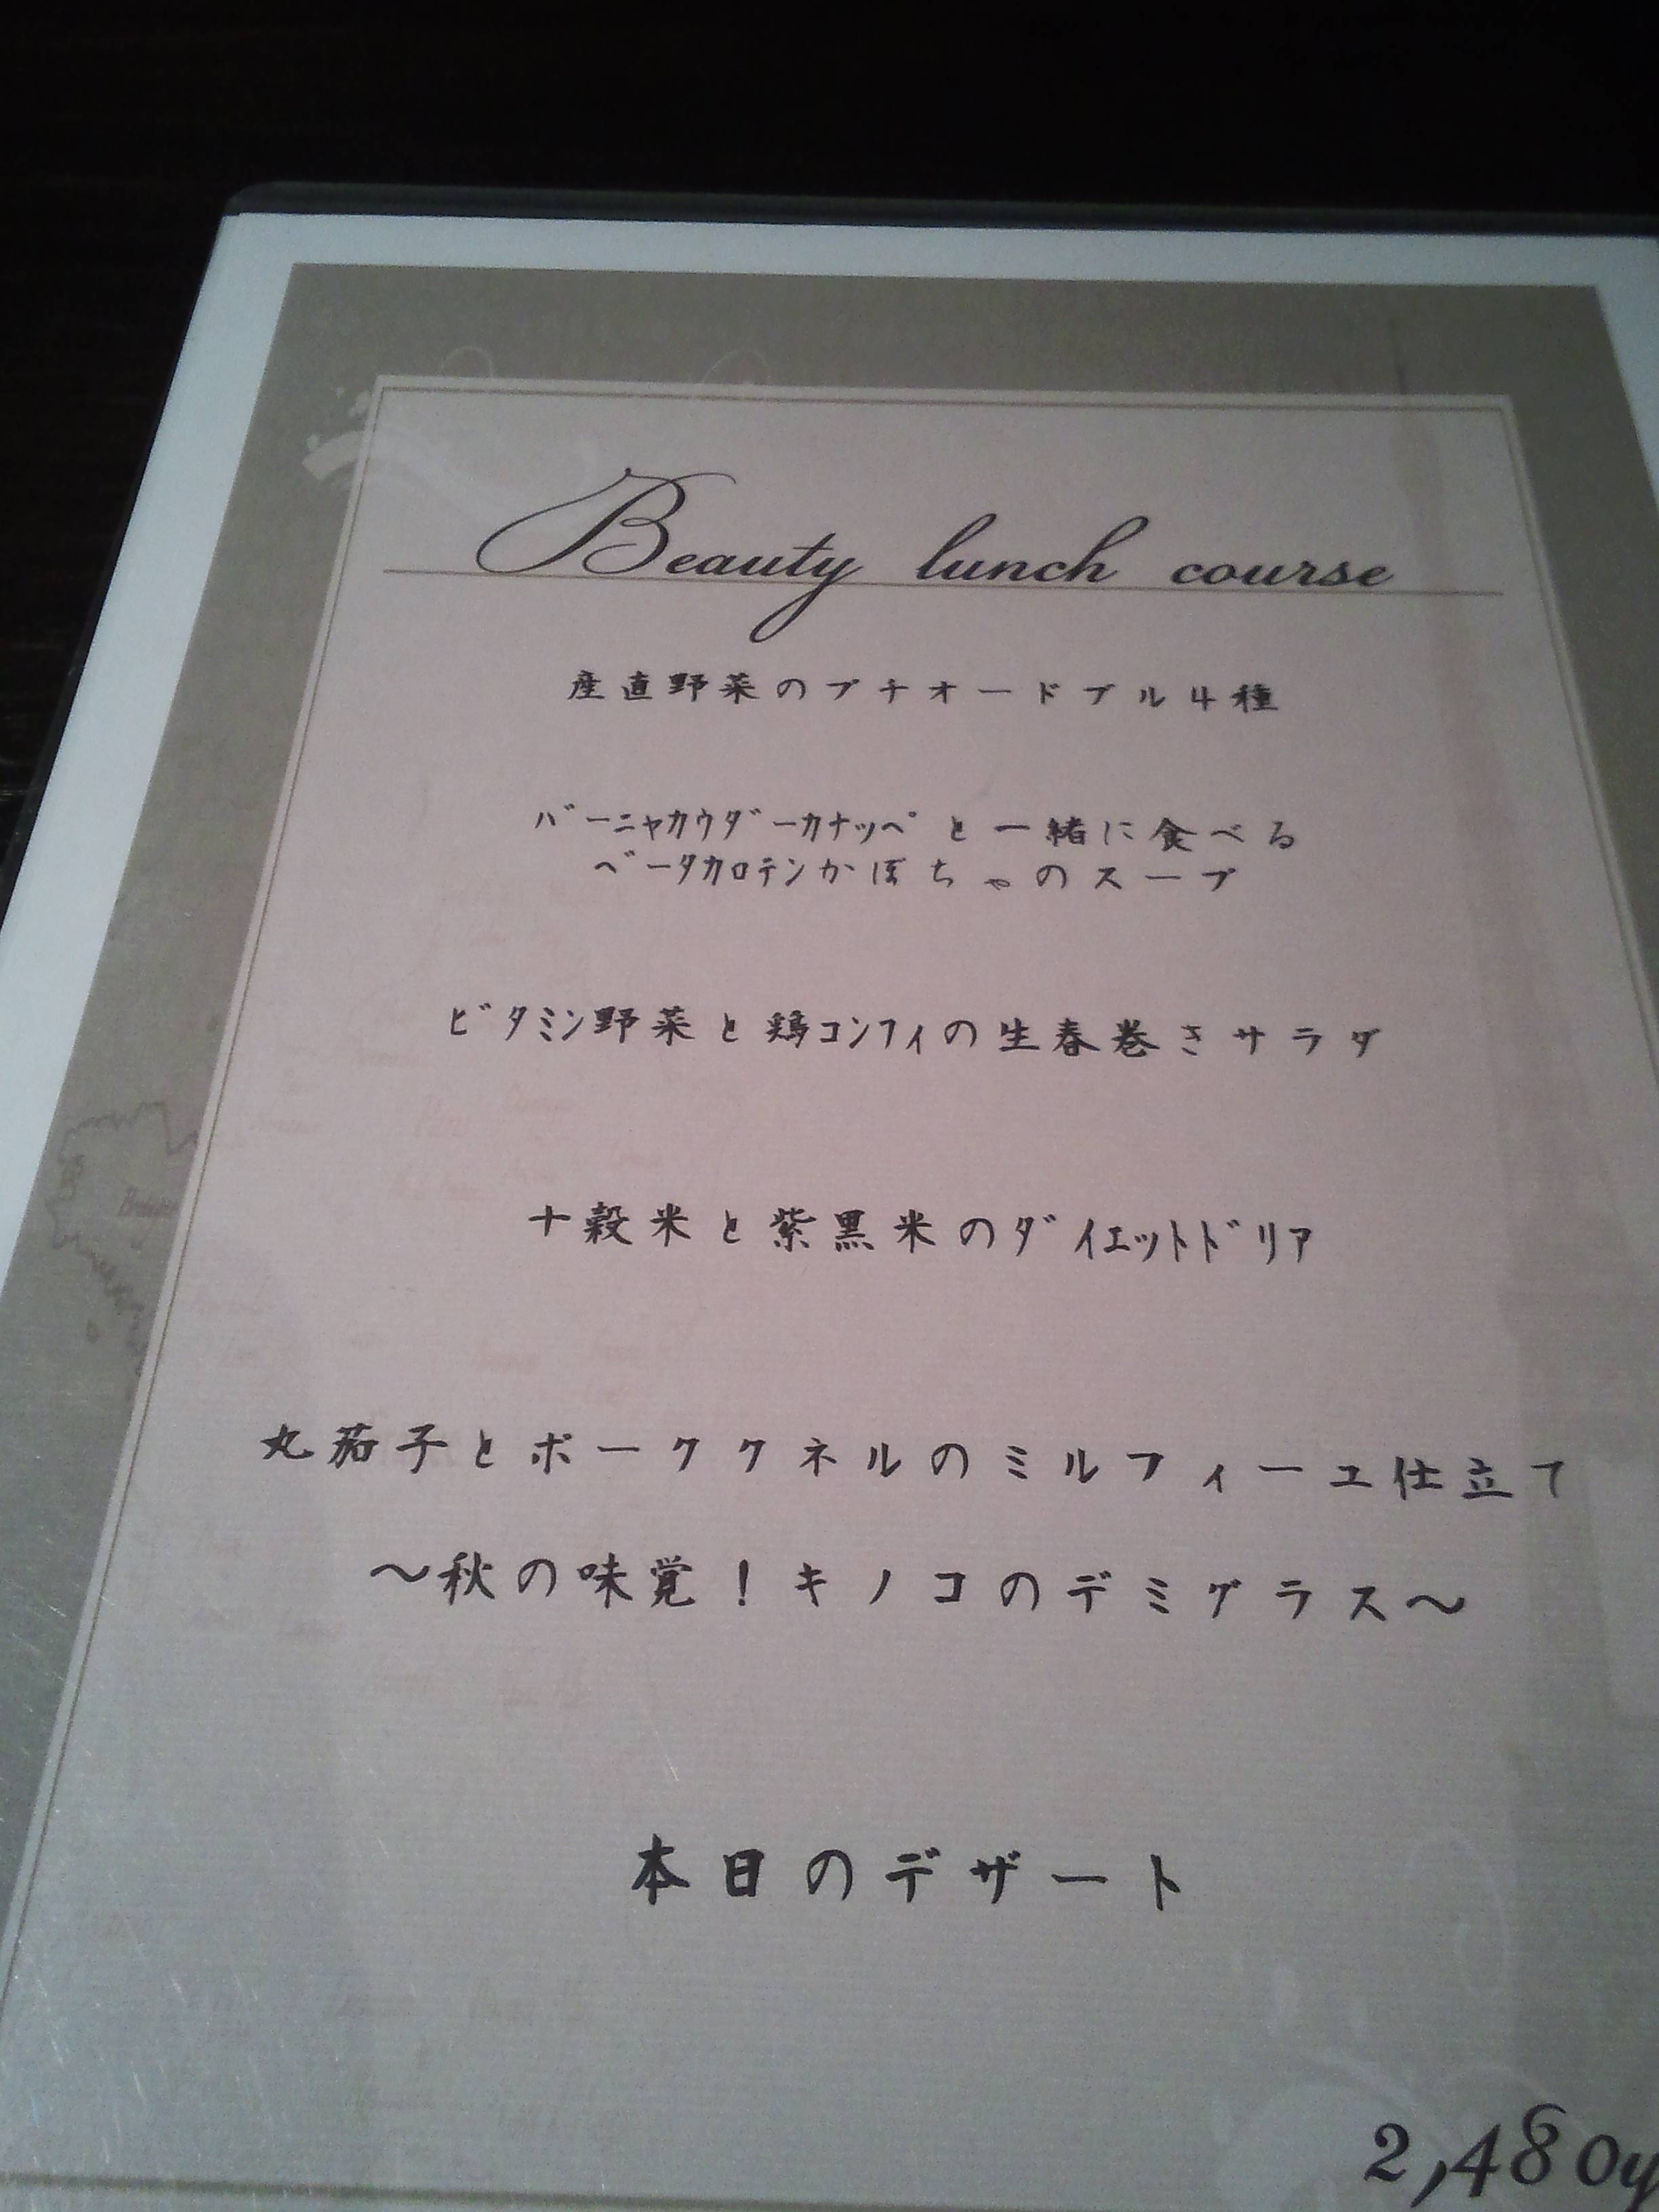 Beauty lunch course
産直野菜のプチオードブル4種
ﾊﾞｰﾆｬｶｳﾀﾞｰｶﾅｯﾍﾟと一緒に食べる
ﾍﾞｰﾀｶﾛﾃﾝかぼちゃのスープ
ﾋﾞﾀﾐﾝ野菜と鶏ｺﾝﾌｨの生春巻きサラダ
十穀米と紫黒米のﾀﾞｲｴｯﾄﾄﾞﾘｱ
丸茄子とポーククネルのミルフィーユ仕立て
～秋の味覚！キノコのデミグラス～
本日のデザート
2,480y